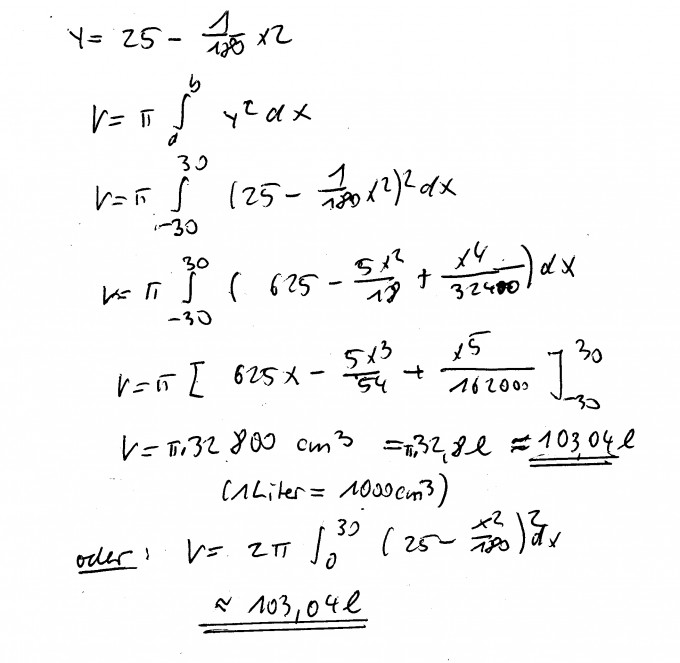 y = 25 - 1/180 x2
V = π ∫_a^b y² dx
V = π ∫_-30^30 (25 - 1/180 x2)² dx
V = π ∫_-30^30 ( 625 - 5x²/18 + x4/32400 ) dx
V = π [ 625x - 5x3/54 + x5/162000 ]_-30^30
V = π·32 800 cm3 = π·32,8 l ≈ 103,04 l
(1 Liter = 1000 cm3)
oder: V = 2π ∫_0^30 (25 - x2/180)² dx
≈ 103,04 l